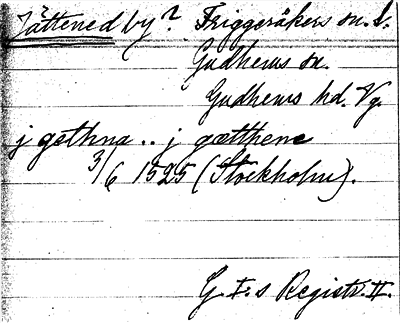 Jättened by? Friggeråkers sn. o.
Gudhems sn.
Gudhems hd. Vg.
j gethna .. j gætthene
3/6 1525 (Stockholm).
G. I:s Registr. II.